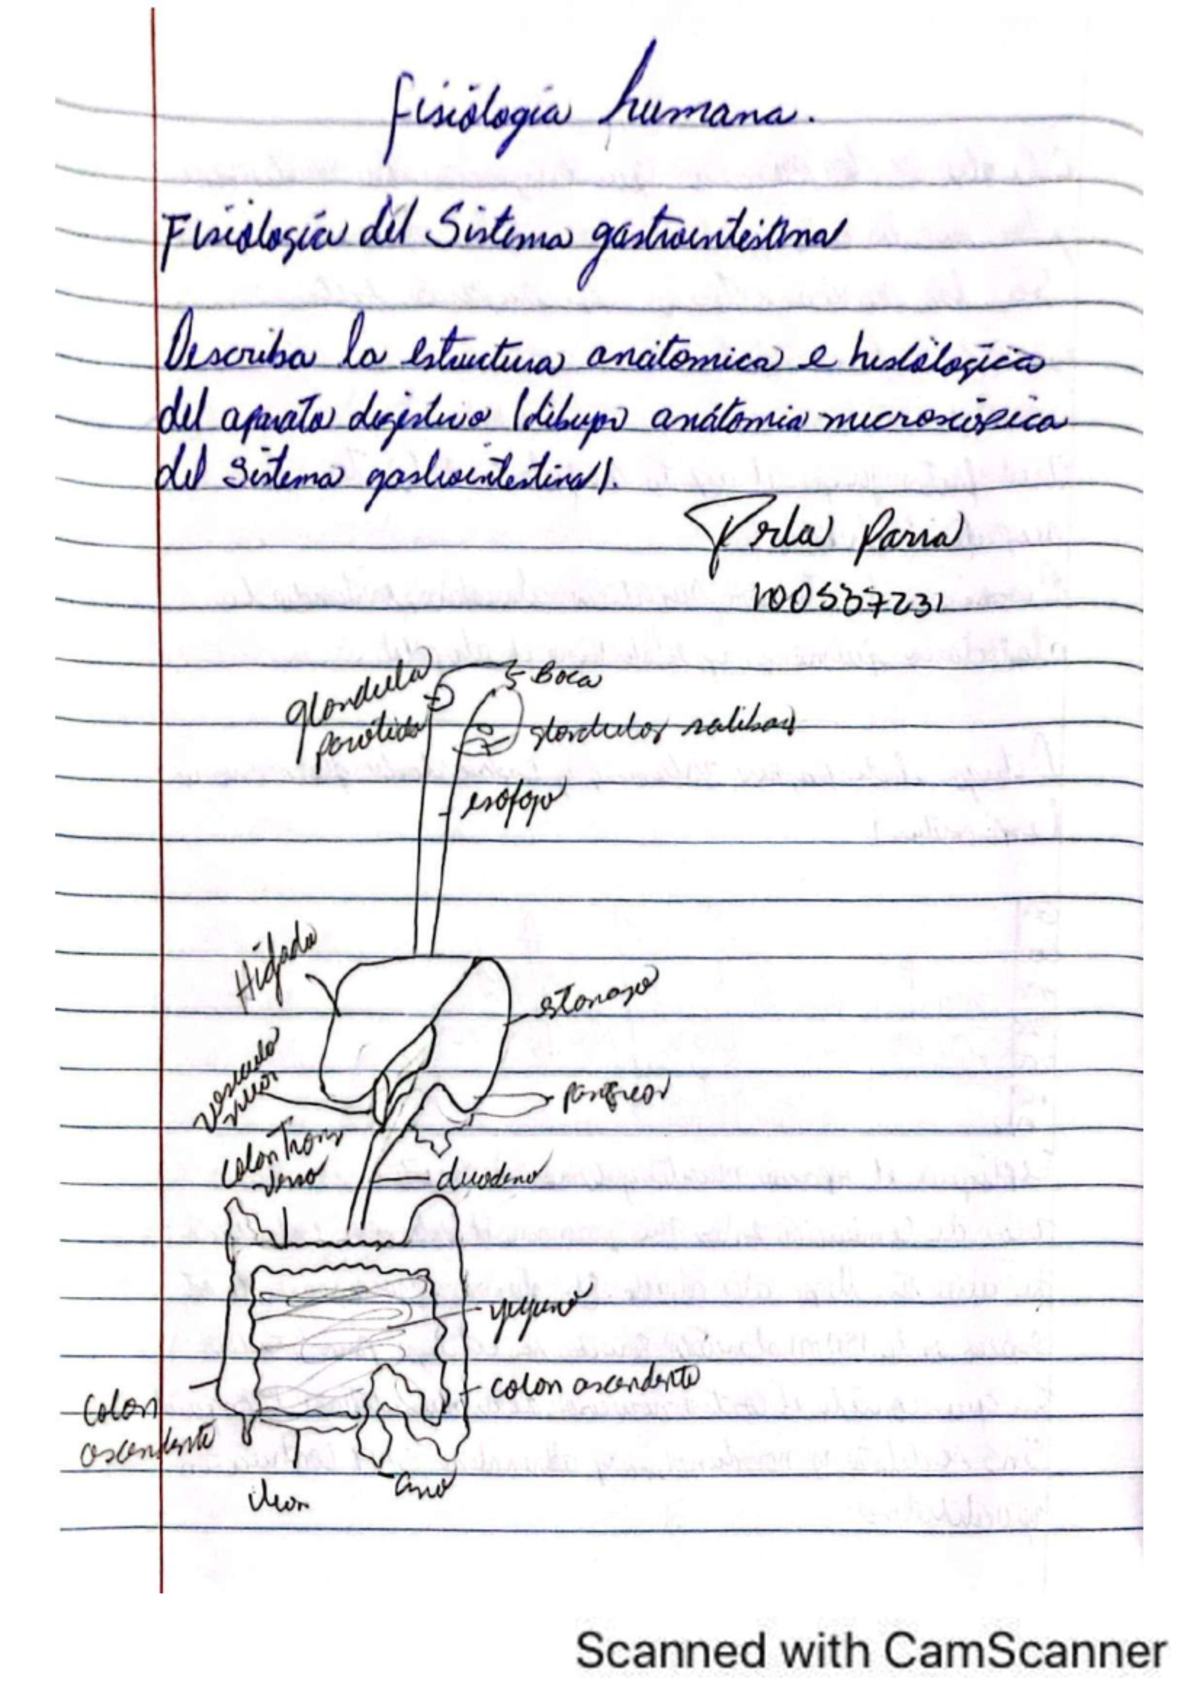 fisiología humana.
Fisiología del Sistema gastrointestinal
Describa la estructura anatomica e histológica
del aparato digestivo (dibujo anátomia microscópica
del Sistema gastrointestinal).
Perla Parra
100537231
glandula
parótida
Boca
glandulas salibar
esófogo
Hígado
estomago
vesicula
pancreas
colon Trans
verso
duodeno
yeyuno
colon ascendente
colon
ascendente
ileon
ano
Scanned with CamScanner